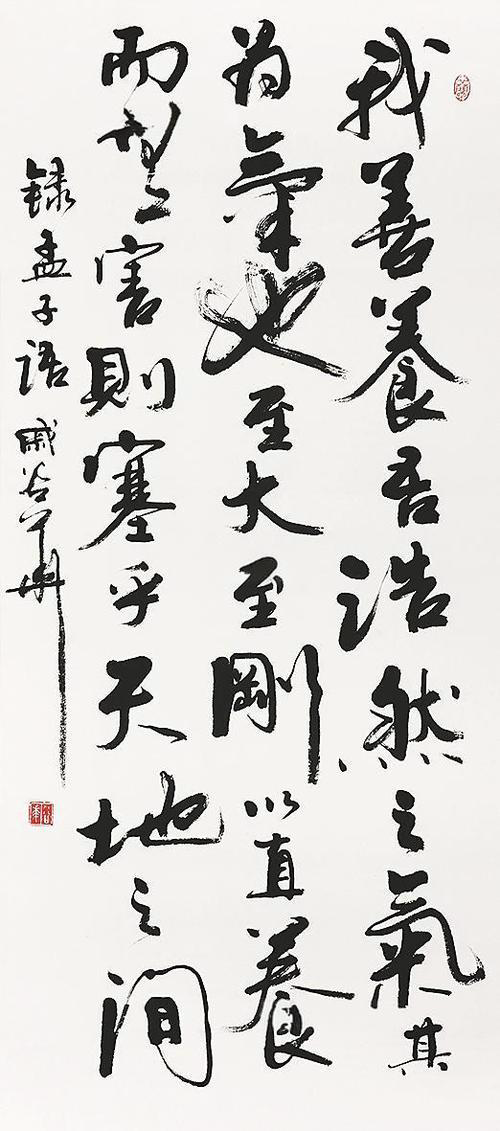 我善養吾浩然之氣其
為氣也至大至剛以直養
而無害則塞乎天地之間
錄孟子語 戚谷華